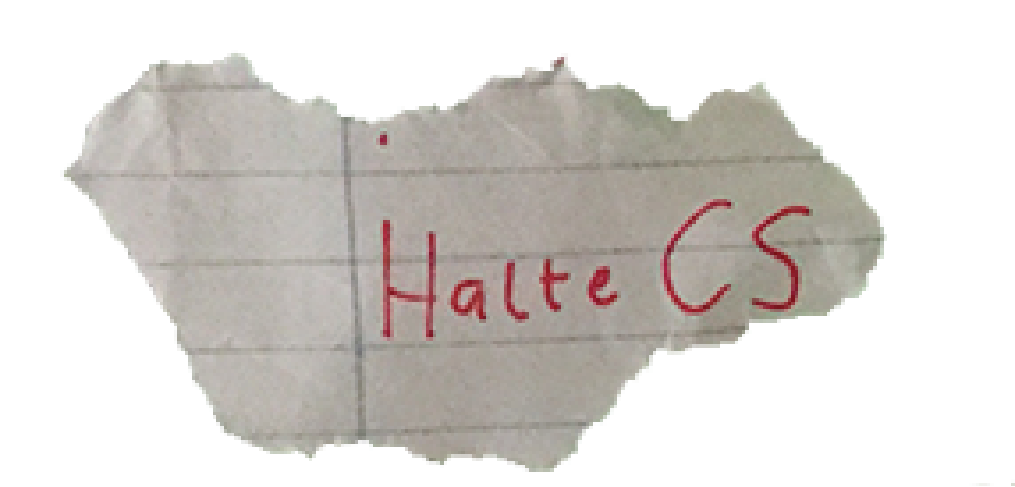 Halte CS